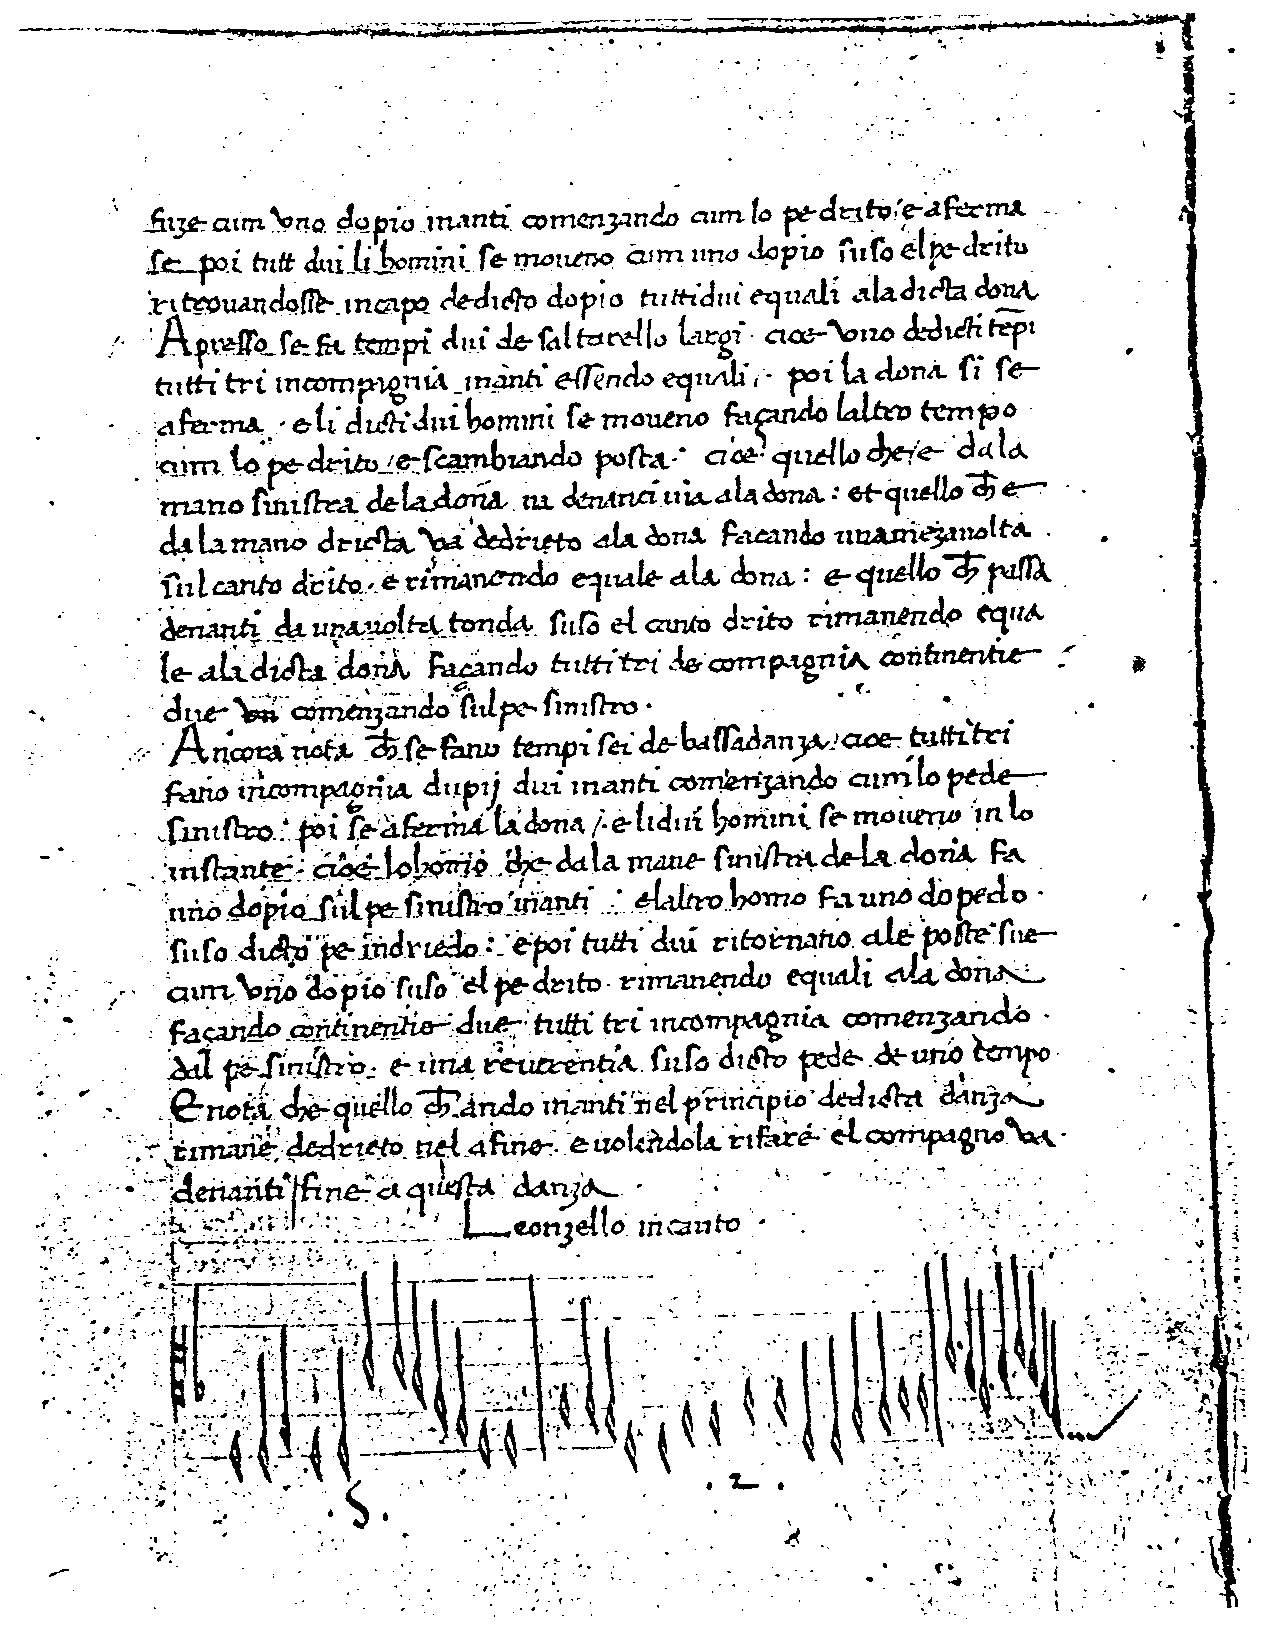 fuze cum uno dopio inanti comenzando cum lo pe drito / e aferma
se poi tutt dui li homini se moueno cum uno dopio suso el pe drito
ritrouandosse in capo de dicto dopio tutti dui equali ala dicta dona
Apresso se fa tempi dui de saltarello largi · cioe uno de dicti tēpi
tutti tri in compagnia inanti essendo equali · poi la dona si se
aferma · e li dicti dui homini se moueno façando laltro tempo
cum lo pe drito / e scambiando posta · cioe quello che / e dala
mano sinistra de la dona ua denanci uia ala dona : et quello ch̄ e
da la mano dricta va dedrieto ala dona facando una meza uolta
sul canto drito · e rimanendo equale ala dona : e quello ch̄ passa
denanti da una uolta tonda suso el canto drito rimanendo equa
le ala dicta dona façando tutti tri de compagnia continentie
due comenzando sul pe sinistro ·
Ancora nota ch̄ se fano tempi sei de bassadanza / cioe tutti tri
fano in compagnia dupij dui inanti comenzando cum lo pede
sinistro : poi se aferma la dona / · e li dui homini se moueno in lo
instante · cioe lo homo che da la mane sinistra de la dona fa
uno dopio sul pe sinistro inanti : el altro homo fa uno dopedo ·
suso dicto pe indriedo : e poi tutti dui ritornano ale poste sue
cum uno dopio suso el pe drito · rimanendo equali ala dona
façando continentie due tutti tri in compagnia comenzando ·
dal pe sinistro · e una reuerentia suso dicto pede de uno tempo
E nota che quello ch̄ ando inanti nel principio de dicta danza
rimane dedrieto nel a fine · e uolendola rifare el compagno va ·
denanti / fine a questa danza ·
Leonzello in canto ·
· 5 ·
· 2 ·